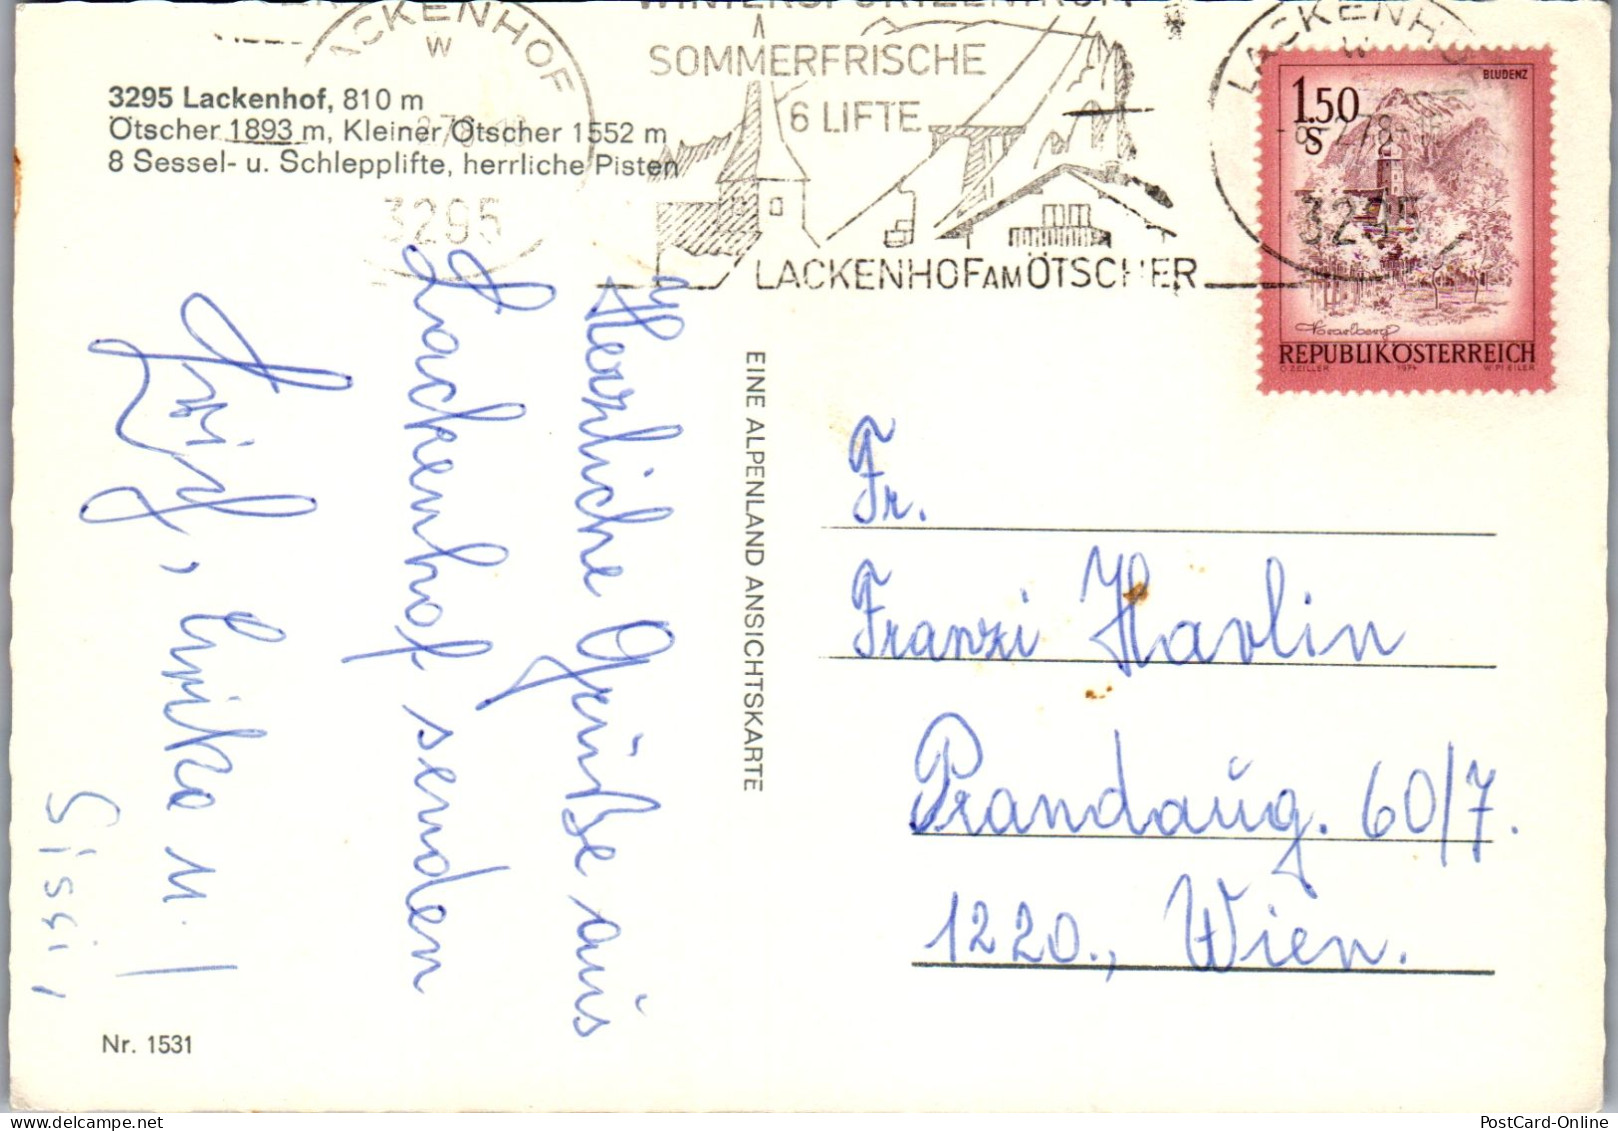 LACKENHOF
W
3295
WINTERSPORTZENTRUM
SOMMERFRISCHE
6 LIFTE
LACKENHOF AM ÖTSCHER
LACKENHOF
W
-8.-2.78-
3295
BLUDENZ
1.50
S
Vorarlberg
REPUBLIK ÖSTERREICH
O.ZEILLER 1974 W.PFEILER
3295 Lackenhof, 810 m
Ötscher 1893 m, Kleiner Ötscher 1552 m
8 Sessel- u. Schlepplifte, herrliche Pisten
Herzliche Grüße aus
Lackenhof senden
, Erika u.
Sissi,
EINE ALPENLAND ANSICHTSKARTE
Fr.
Franzi Havlin
Prandaug. 60/7.
1220., Wien.
Nr. 1531
PostCard-Online